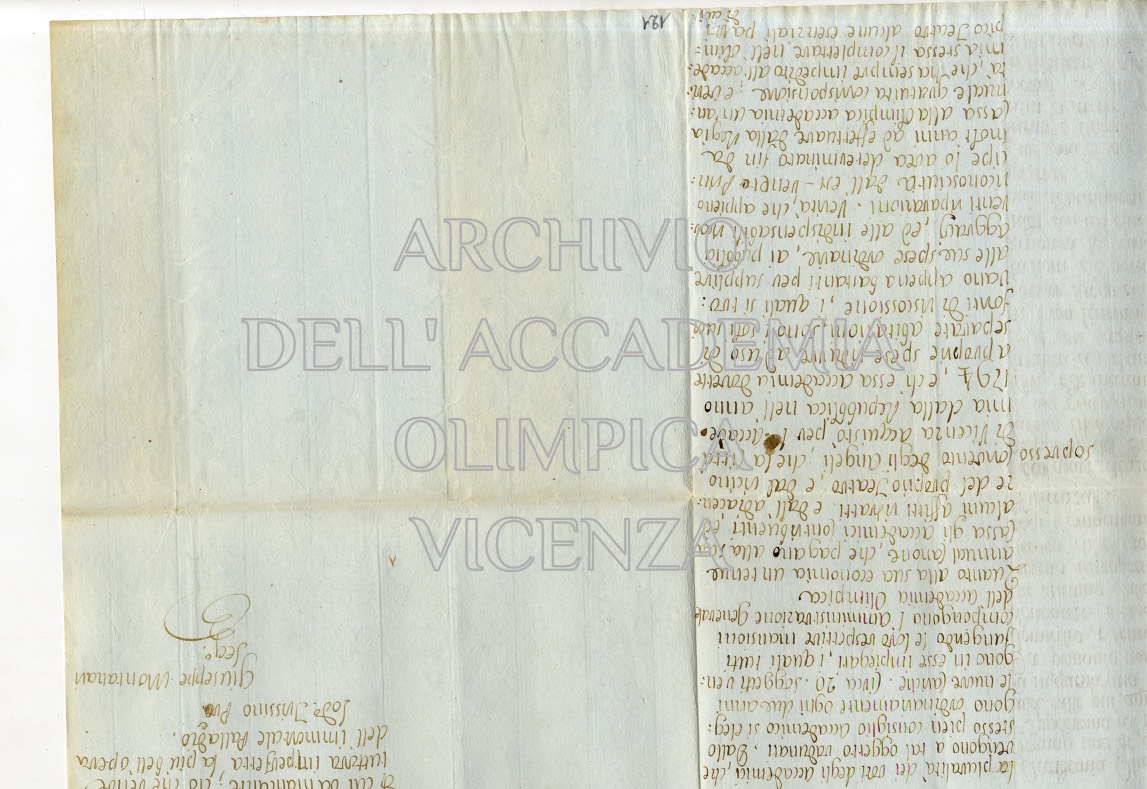 la pluralità dei voti degli accademici che
vengono a tal oggetto radunati. Dallo
stesso pien consiglio accademico si eleg:
gono ordinariamente ogni due anni
le nuove cariche. Circa 20. soggetti ven:
gono in esse impiegati, i quali tutti
fungendo le loro respettive mansioni
compongono l'amministrazione generale
dell'accademia Olimpica
Quanto alla sua economia un tenue
annual canone, che pagano alla sua
cassa gli accademici contribuenti, ed
alcuni affitti ritratti e dall'adiacen:
ze del proprio Teatro, e dal vicino
soppresso
convento degli Angeli, che la città
di Vicenza acquistò per l'accade:
mia dalla Repubblica nell'anno
1794, e ch'essa accademia dovette
a proprie spese ridurre ad uso di
separate abitazioni, sono stati
fonti di riscossione, i quali si tro:
vano appena bastanti per supplire
alle sue spese ordinarie, ai pubblici
aggravj, ed alle indispensabili
renti riparazioni. Verità, che appieno
riconosciuta dall'ex-veneto Prin:
cipe lo avea determinato fin da
molt'anni ad effettuare dalla Regia
cassa alla Olimpica accademia un'an:
nuale gratuita corrisponsione; e veri:
tà, che ha sempre impedito all'accade:
mia stessa il complettare nell'Olim:
pico Teatro alcune essenziali parti
di cui
di cui va mancante; ciò che rende
tuttora imperfetta la più bell'opera
dell'immortale Palladio.
Trissino
Giuseppe Montanari
Segr.
121
ARCHIVIO
DELL' ACCADEMIA
OLIMPICA
VICENZA